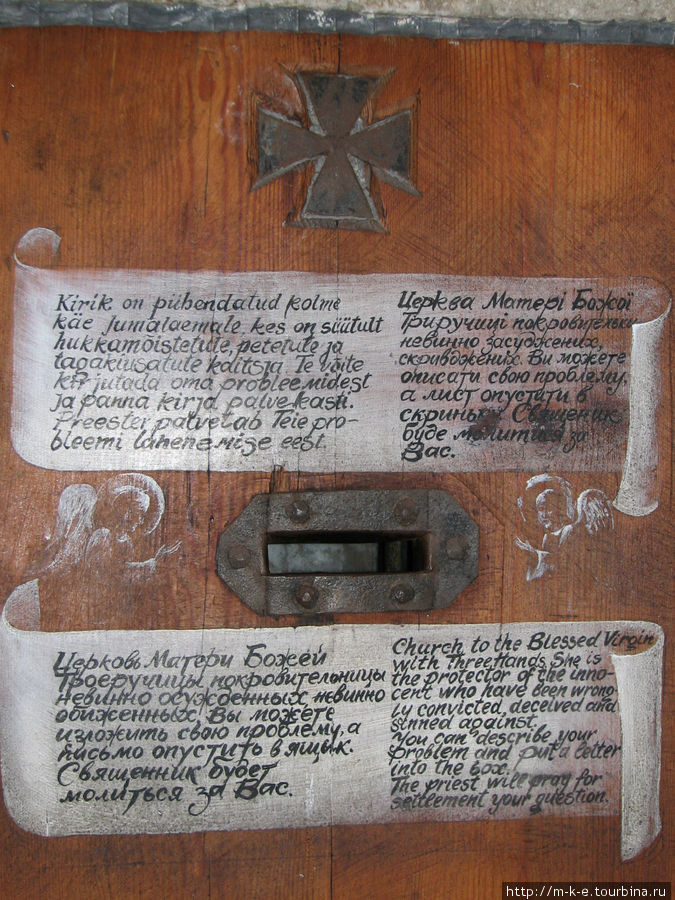 Kirik on pühendatud kolme
käe Jumalaemale, kes on süütult
hukkamõistetute, petetute ja
tagakiusatute kaitsja. Te võite
kirjutada oma probleemidest
ja panna kirja palvekasti.
Preester palvetab Teie pro-
bleemi lahenemise eest.
Церква Матері Божої
Триручиці покровительки
невинно засуджених,
скривджених. Ви можете
описати свою проблему,
а лист опустити в
скриньку. Священик
буде молитися за
Вас.
Церковь Матери Божей
Троеручицы покровительницы
невинно осужденных, невинно
обиженных. Вы можете
изложить свою проблему, а
письмо опустить в ящык.
Священник будет
молиться за Вас.
Church to the Blessed Virgin
with Three Hands. She is
the protector of the inno-
cent who have been wrong-
ly convicted, deceived and
sinned against.
You can describe your
problem and put a letter
into the box.
The priest will pray for
settlement your question.
http://m-k-e.tourbina.ru